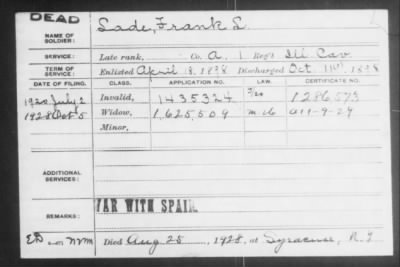 DEAD
NAME OF SOLDIER: Lade, Frank L.
SERVICE: Late rank, Co. A, 1 Reg't Ill Cav
TERM OF SERVICE: Enlisted April 18, 1898 Discharged Oct. 11th, 1898
DATE OF FILING. CLASS. APPLICATION NO. LAW. CERTIFICATE NO.
1920 July 2 Invalid, 1435324 1286573
1928 Oct 5 Widow, 1,625,509 A11-9-29
Minor,
ADDITIONAL SERVICES:
WAR WITH SPAIN.
REMARKS:
Died Aug 25, 1928, at Syracuse, N.Y.